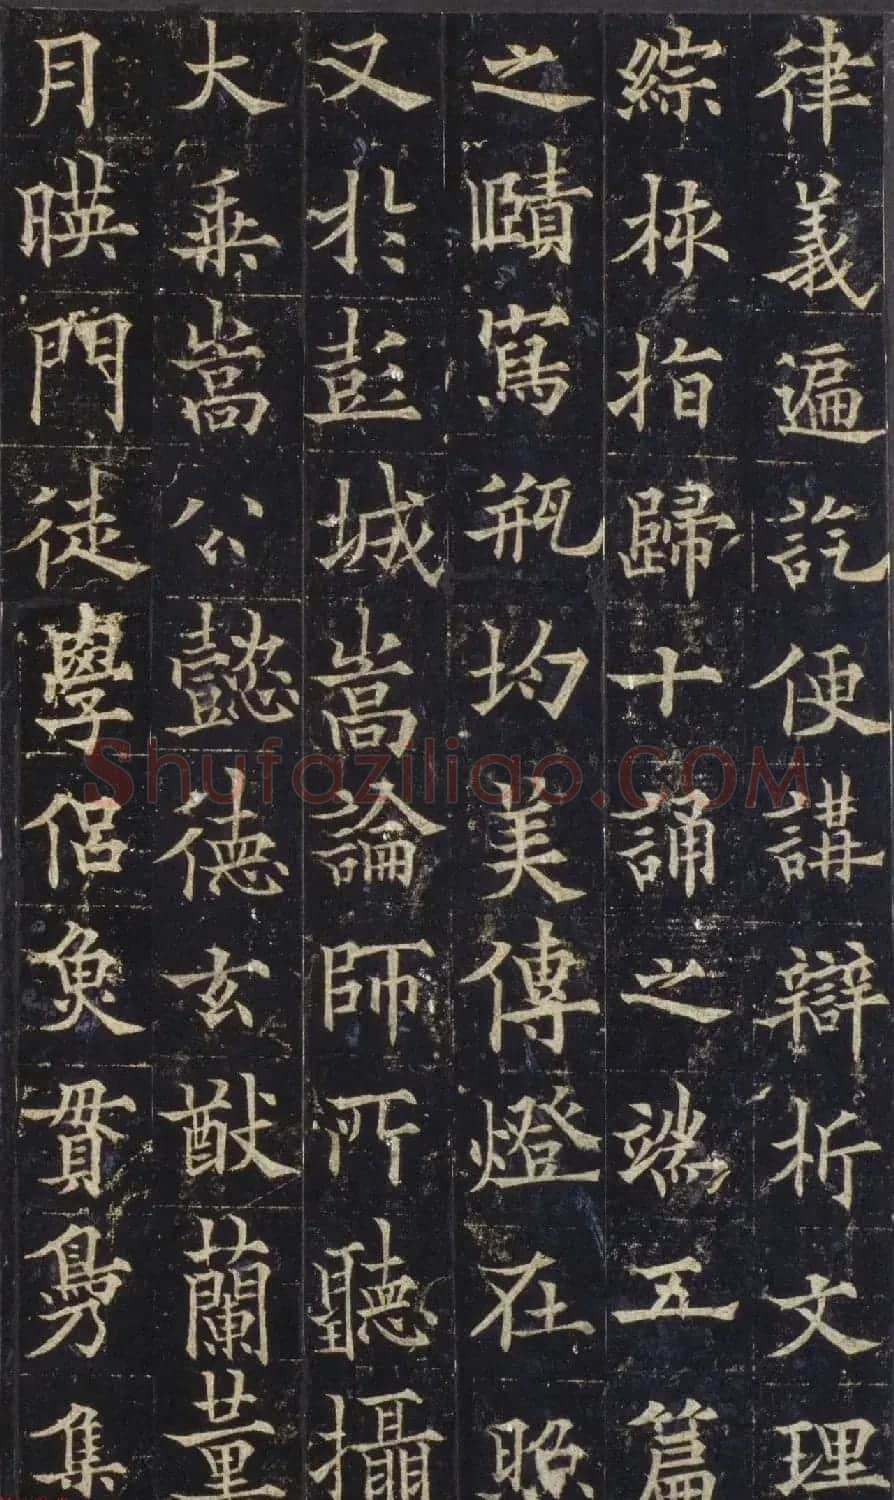 律義遍訖便講辯析文理
綜指歸十誦之端五篇
之賾寫瓶均美傳燈在照
又於彭城嵩論師所聽攝
大乘嵩公懿德玄猷蘭薰
月暎門徒學侶魚貫鳧集
Shufaziliao.COM